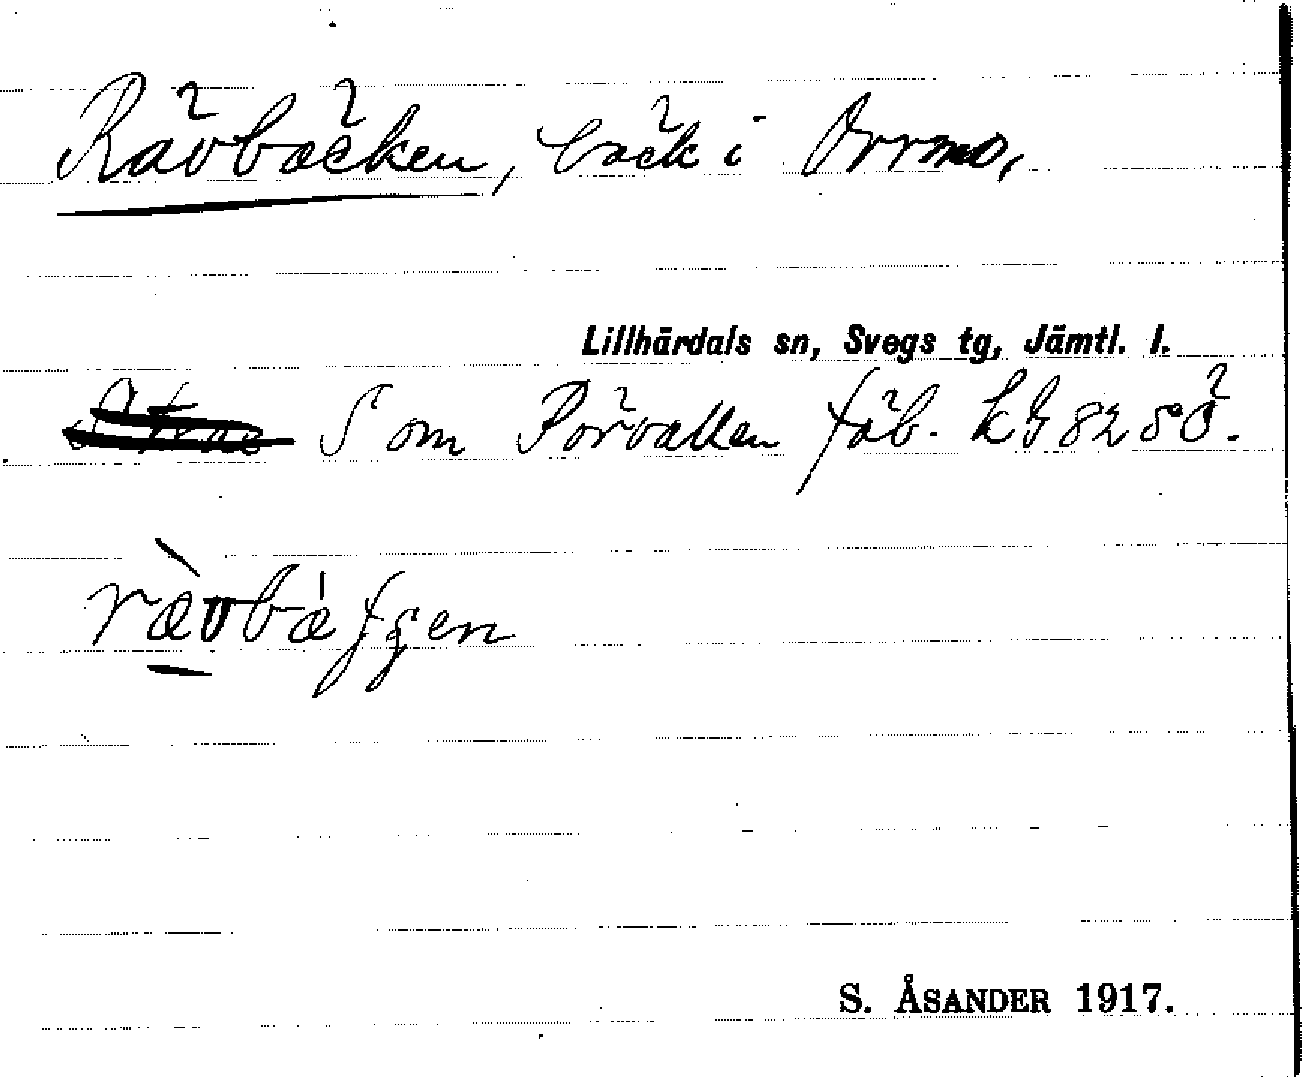 Rävbäcken, bäck i Orrmo,
Lillhärdals sn, Svegs tg, Jämtl. l.
S om Pörvallen fäb. LG 8280.
rævbæʃʃen
S. ÅSANDER 1917.